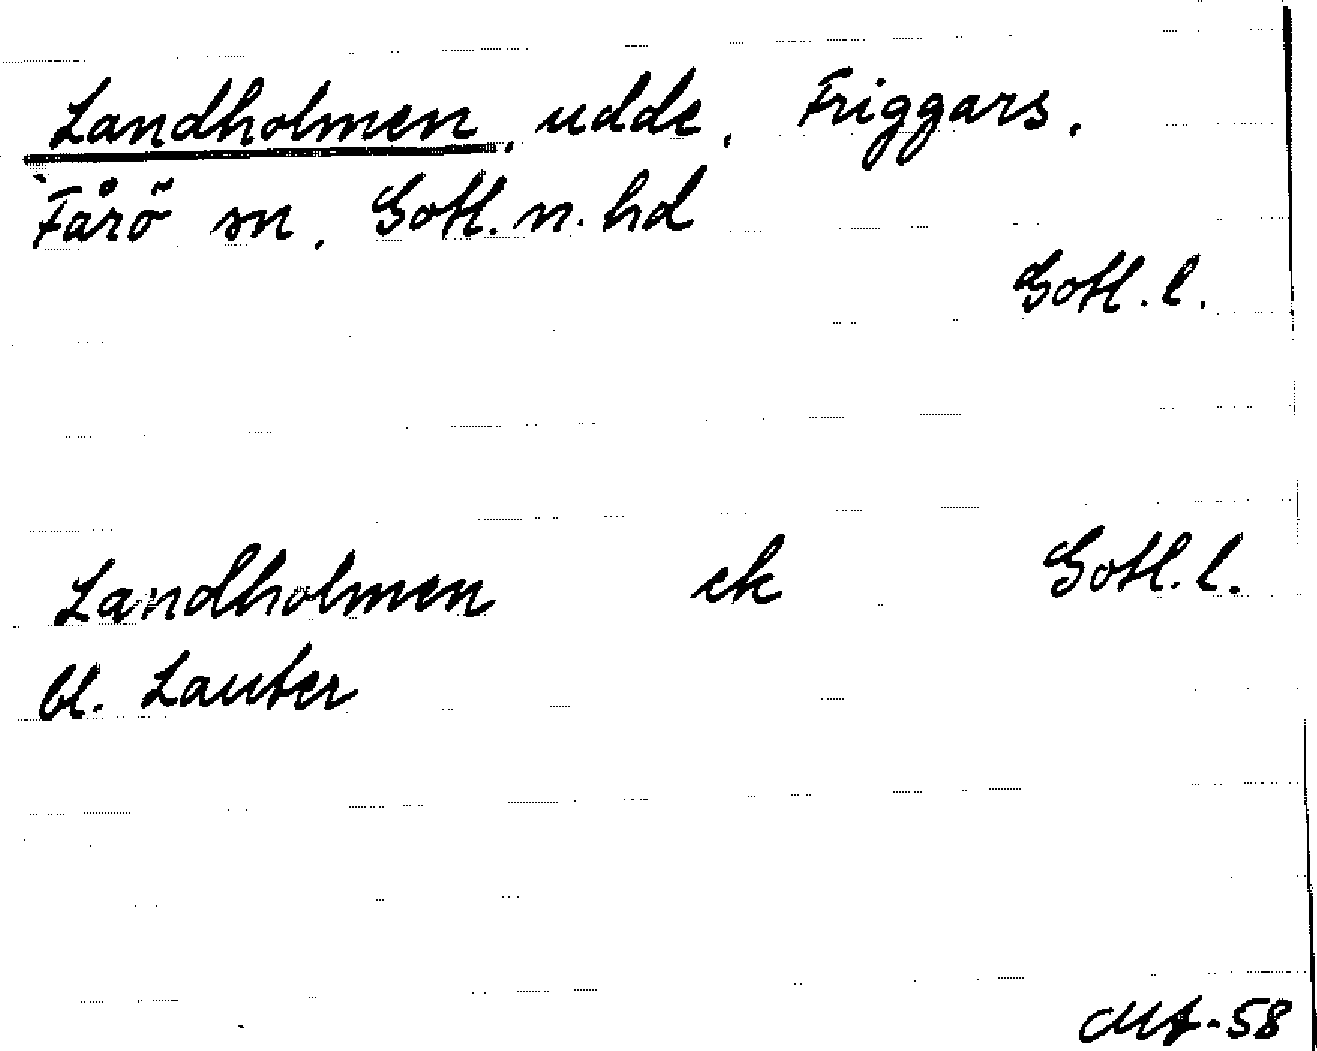 Landholmen, udde, Friggars,
Fårö sn, Gotl. n. hd
Gotl. l.
Landholmen ek Gotl. l.
bl. Lauter